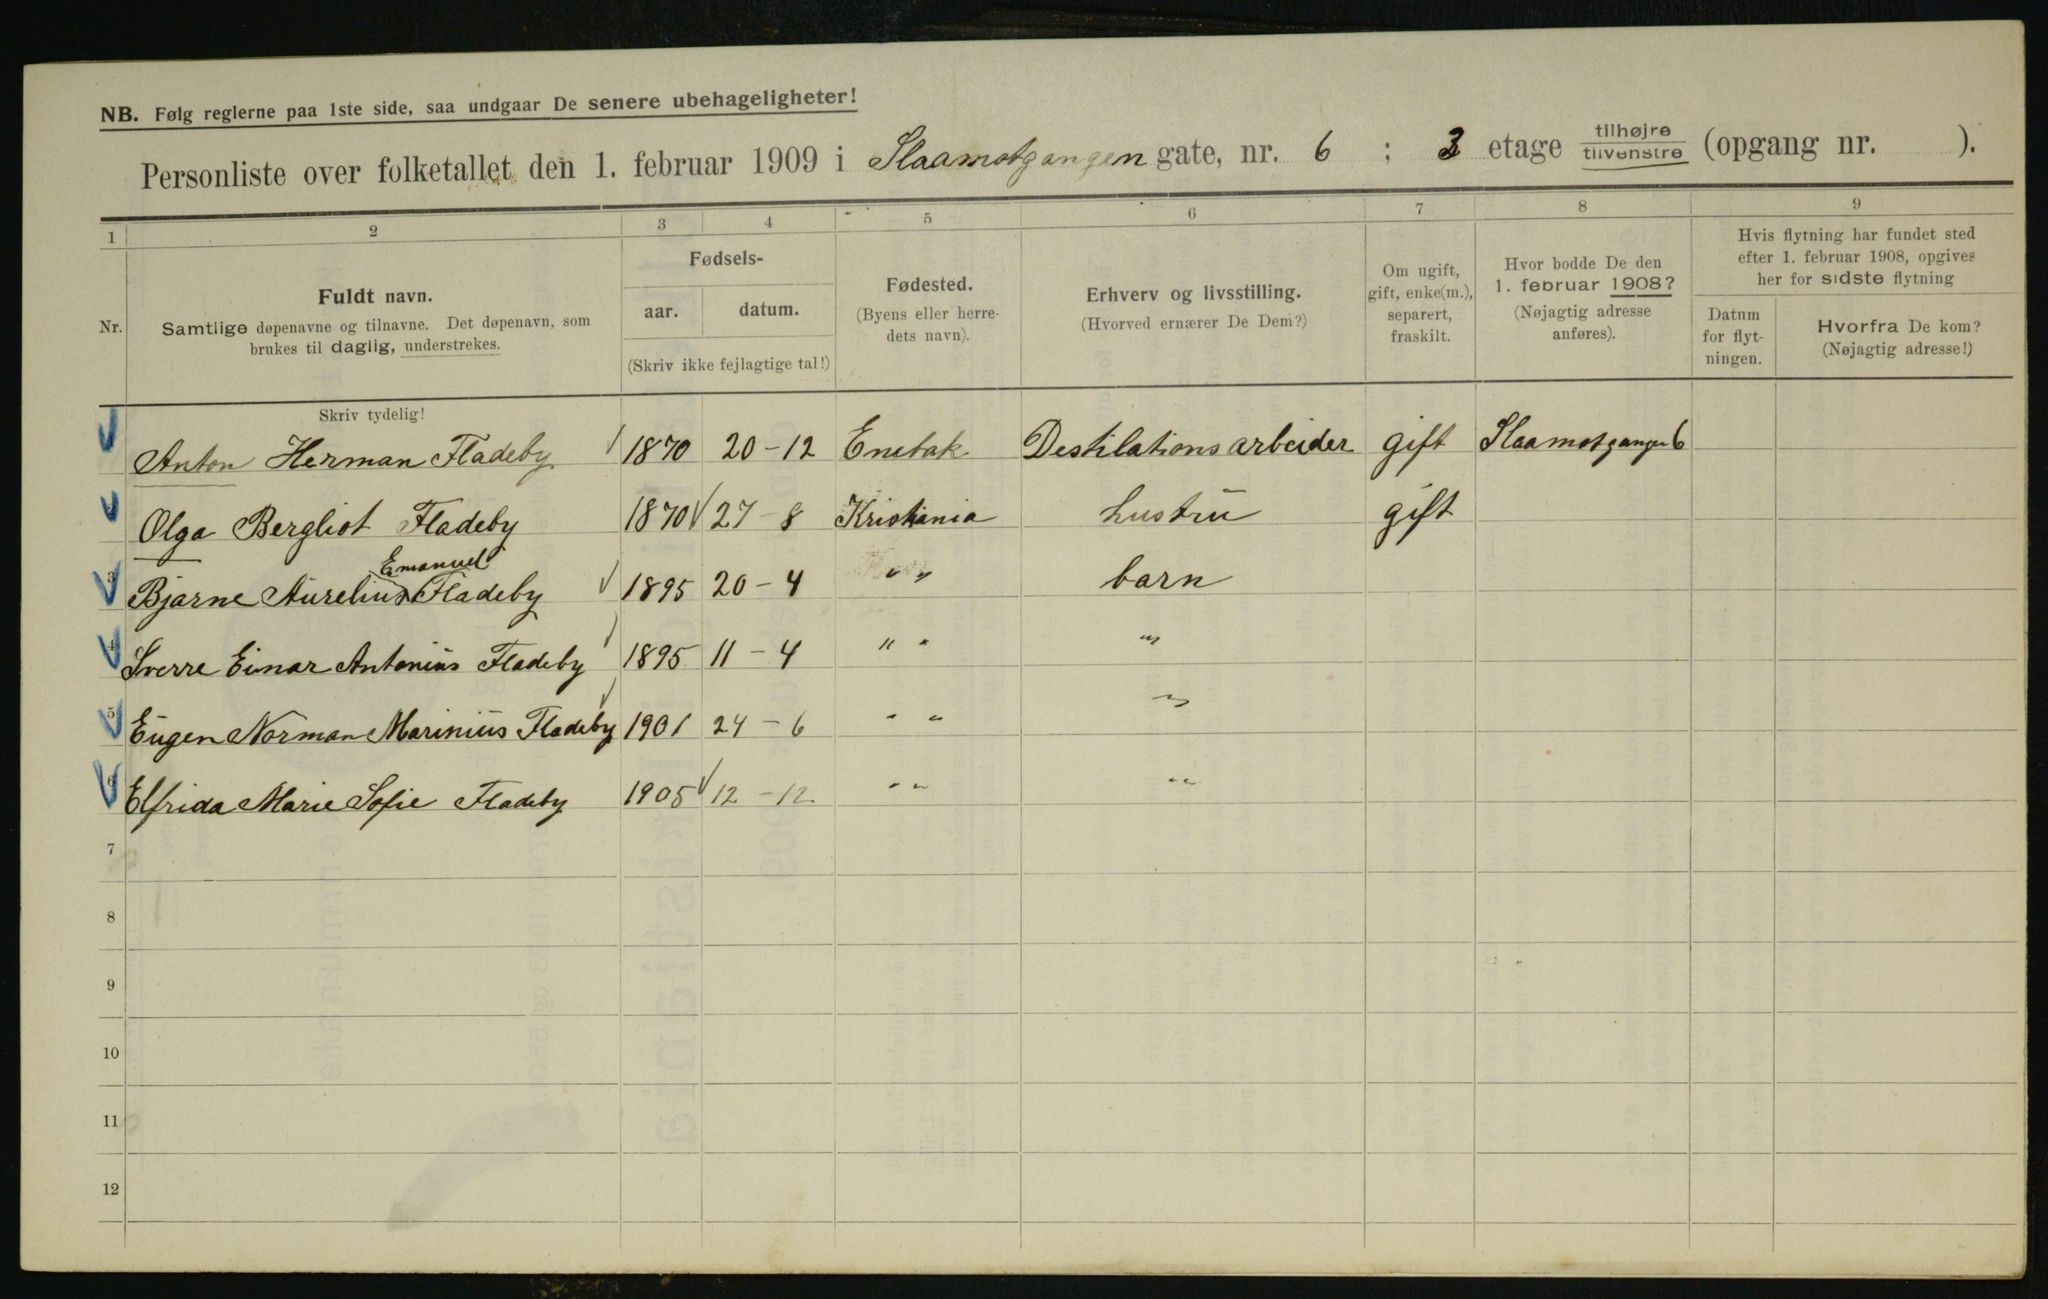 NB. Følg reglerne paa 1ste side, saa undgaar De senere ubehageligheter!
Personliste over folketallet den 1. februar 1909 i Slaamotgangen gate, nr. 6 ; 3 etage tilhøjre tilvenstre (opgang nr. ).
1 2 3 4 5 6 7 8 9
Nr.
Fuldt navn.
Samtlige døpenavne og tilnavne. Det døpenavn, som
brukes til daglig, understrekes.
Fødsels-
aar. datum.
(Skriv ikke fejlagtige tal!)
Fødested.
(Byens eller herre-
dets navn).
Erhverv og livsstilling.
(Hvorved ernærer De Dem?)
Om ugift,
gift, enke(m.),
separert,
fraskilt.
Hvor bodde De den
1. februar 1908?
(Nøjagtig adresse
anføres).
Hvis flytning har fundet sted
efter 1. februar 1908, opgives
her for sidste flytning
Datum
for flyt-
ningen.
Hvorfra De kom?
(Nøjagtig adresse!)
Skriv tydelig!
Anton Herman Fladeby 1870 20-12 Enebak Destilationsarbeider gift Slaamotgangen 6
Olga Bergliot Fladeby 1870 27-8 Kristiania hustru gift
Emanuel
3 Bjarne Aurelius Fladeby 1895 20-4 " " barn
4 Sverre Einar Antonius Fladeby 1895 11-4 " " "
5 Eugen Norman Marinius Fladeby 1901 24-6 " " "
6 Elfrida Marie Sofie Fladeby 1905 12-12 " " "
7
8
9
10
11
12